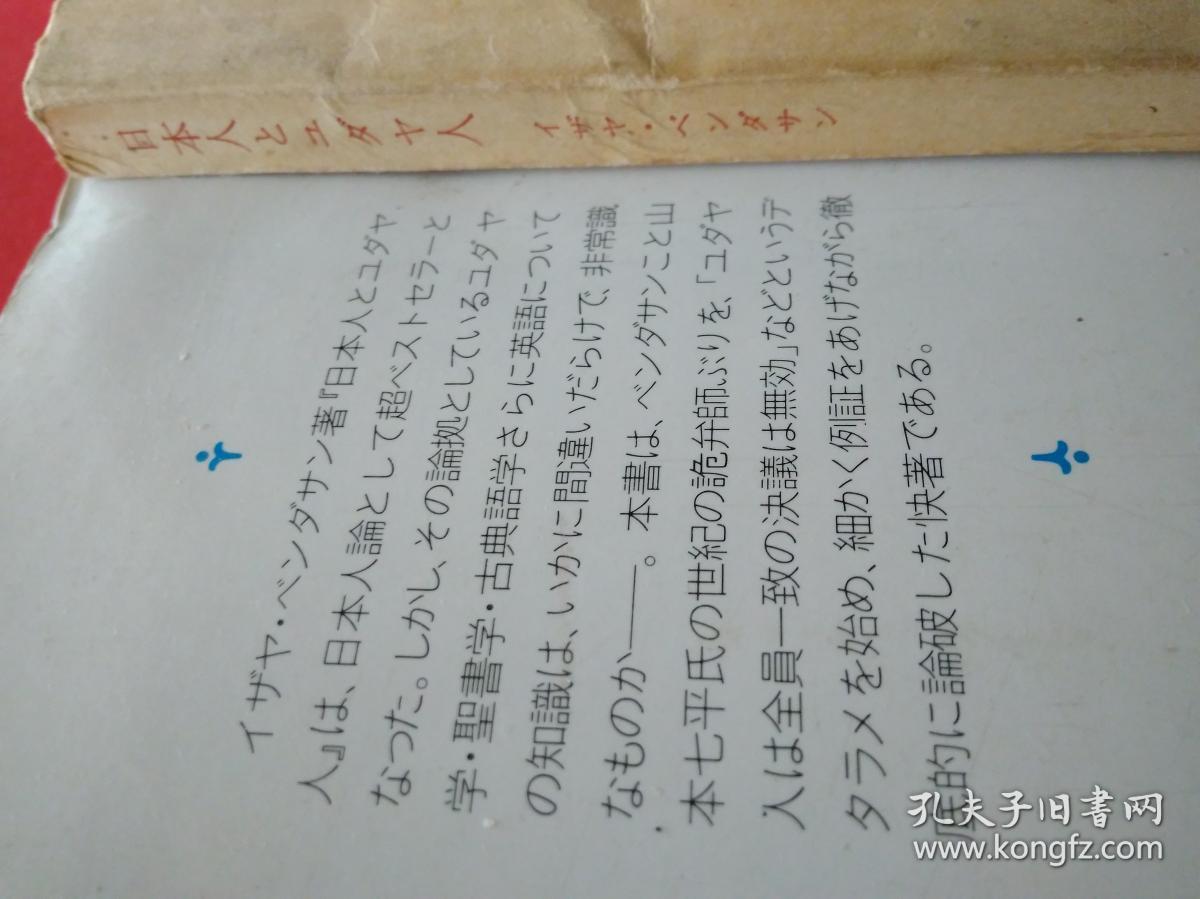 日本人とユダヤ人 イザヤ・ベンダサン
イザヤ・ベンダサン著『日本人とユダヤ
人』は、日本人論として超ベストセラーと
なつた。しかし、その論拠としているユダヤ
学・聖書学・古典語学さらに英語について
の知識は、いかに間違いだらけで、非常識
なものか――。本書は、ベンダサンこと山
本七平氏の世紀の詭弁師ぶりを、「ユダヤ
人は全員一致の決議は無効」などというデ
タラメを始め、細かく例証をあげながら徹
底的に論破した快著である。
孔夫子旧书网
www.kongfz.com